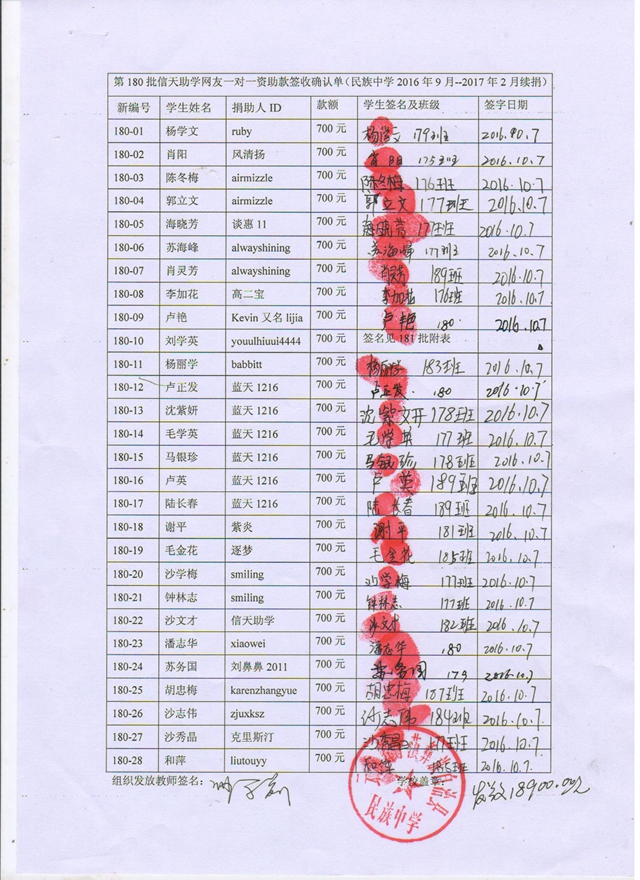 第 180 批信天助学网友一对一资助款签收确认单（民族中学 2016 年 9 月--2017 年 2 月续捐）
新编号 学生姓名 捐助人 ID 款额 学生签名及班级 签字日期
180-01 杨学文 ruby 700 元 杨学文 179班 2016.10.7
180-02 肖阳 风清扬 700 元 肖阳 175班 2016.10.7
180-03 陈冬梅 airmizzle 700 元 陈冬梅 176班 2016.10.7
180-04 郭立文 airmizzle 700 元 郭立文 177班 2016.10.7
180-05 海晓芳 谈惠 11 700 元 海晓芳 177班 2016.10.7
180-06 苏海峰 alwayshining 700 元 苏海峰 177班 2016.10.7
180-07 肖灵芳 alwayshining 700 元 肖灵芳 189班 2016.10.7
180-08 李加花 高二宝 700 元 李加花 176班 2016.10.7
180-09 卢艳 Kevin 又名 lijia 700 元 卢艳 180 2016.10.7
180-10 刘学英 youulhiuui4444 700 元 签名见 181 批附表
180-11 杨丽学 babbitt 700 元 杨丽学 183班 2016.10.7
180-12 卢正发 蓝天 1216 700 元 卢正发 180 2016.10.7
180-13 沈紫妍 蓝天 1216 700 元 沈紫妍 178班 2016.10.7
180-14 毛学英 蓝天 1216 700 元 毛学英 177班 2016.10.7
180-15 马银珍 蓝天 1216 700 元 马银珍 178班 2016.10.7
180-16 卢英 蓝天 1216 700 元 卢英 189班 2016.10.7
180-17 陆长春 蓝天 1216 700 元 陆长春 189班 2016.10.7
180-18 谢平 紫炎 700 元 谢平 181班 2016.10.7
180-19 毛金花 逐梦 700 元 毛金花 185班 2016.10.7
180-20 沙学梅 smiling 700 元 沙学梅 177班 2016.10.7
180-21 钟林志 smiling 700 元 钟林志 177班 2016.10.7
180-22 沙文才 信天助学 700 元 沙文才 182班 2016.10.7
180-23 潘志华 xiaowei 700 元 潘志华 180 2016.10.7
180-24 苏务国 刘鼻鼻 2011 700 元 苏务国 179 2016.10.7
180-25 胡忠梅 karenzhangyue 700 元 胡忠梅 187班 2016.10.7
180-26 沙志伟 zjuxksz 700 元 沙志伟 184班 2016.10.7
180-27 沙秀晶 克里斯汀 700 元 沙秀晶 177班 2016.10.7
180-28 和萍 liutouyy 700 元 和萍 185班 2016.10.7.
组织发放教师签名： 学校盖章： 发放18900.00元
民族中学